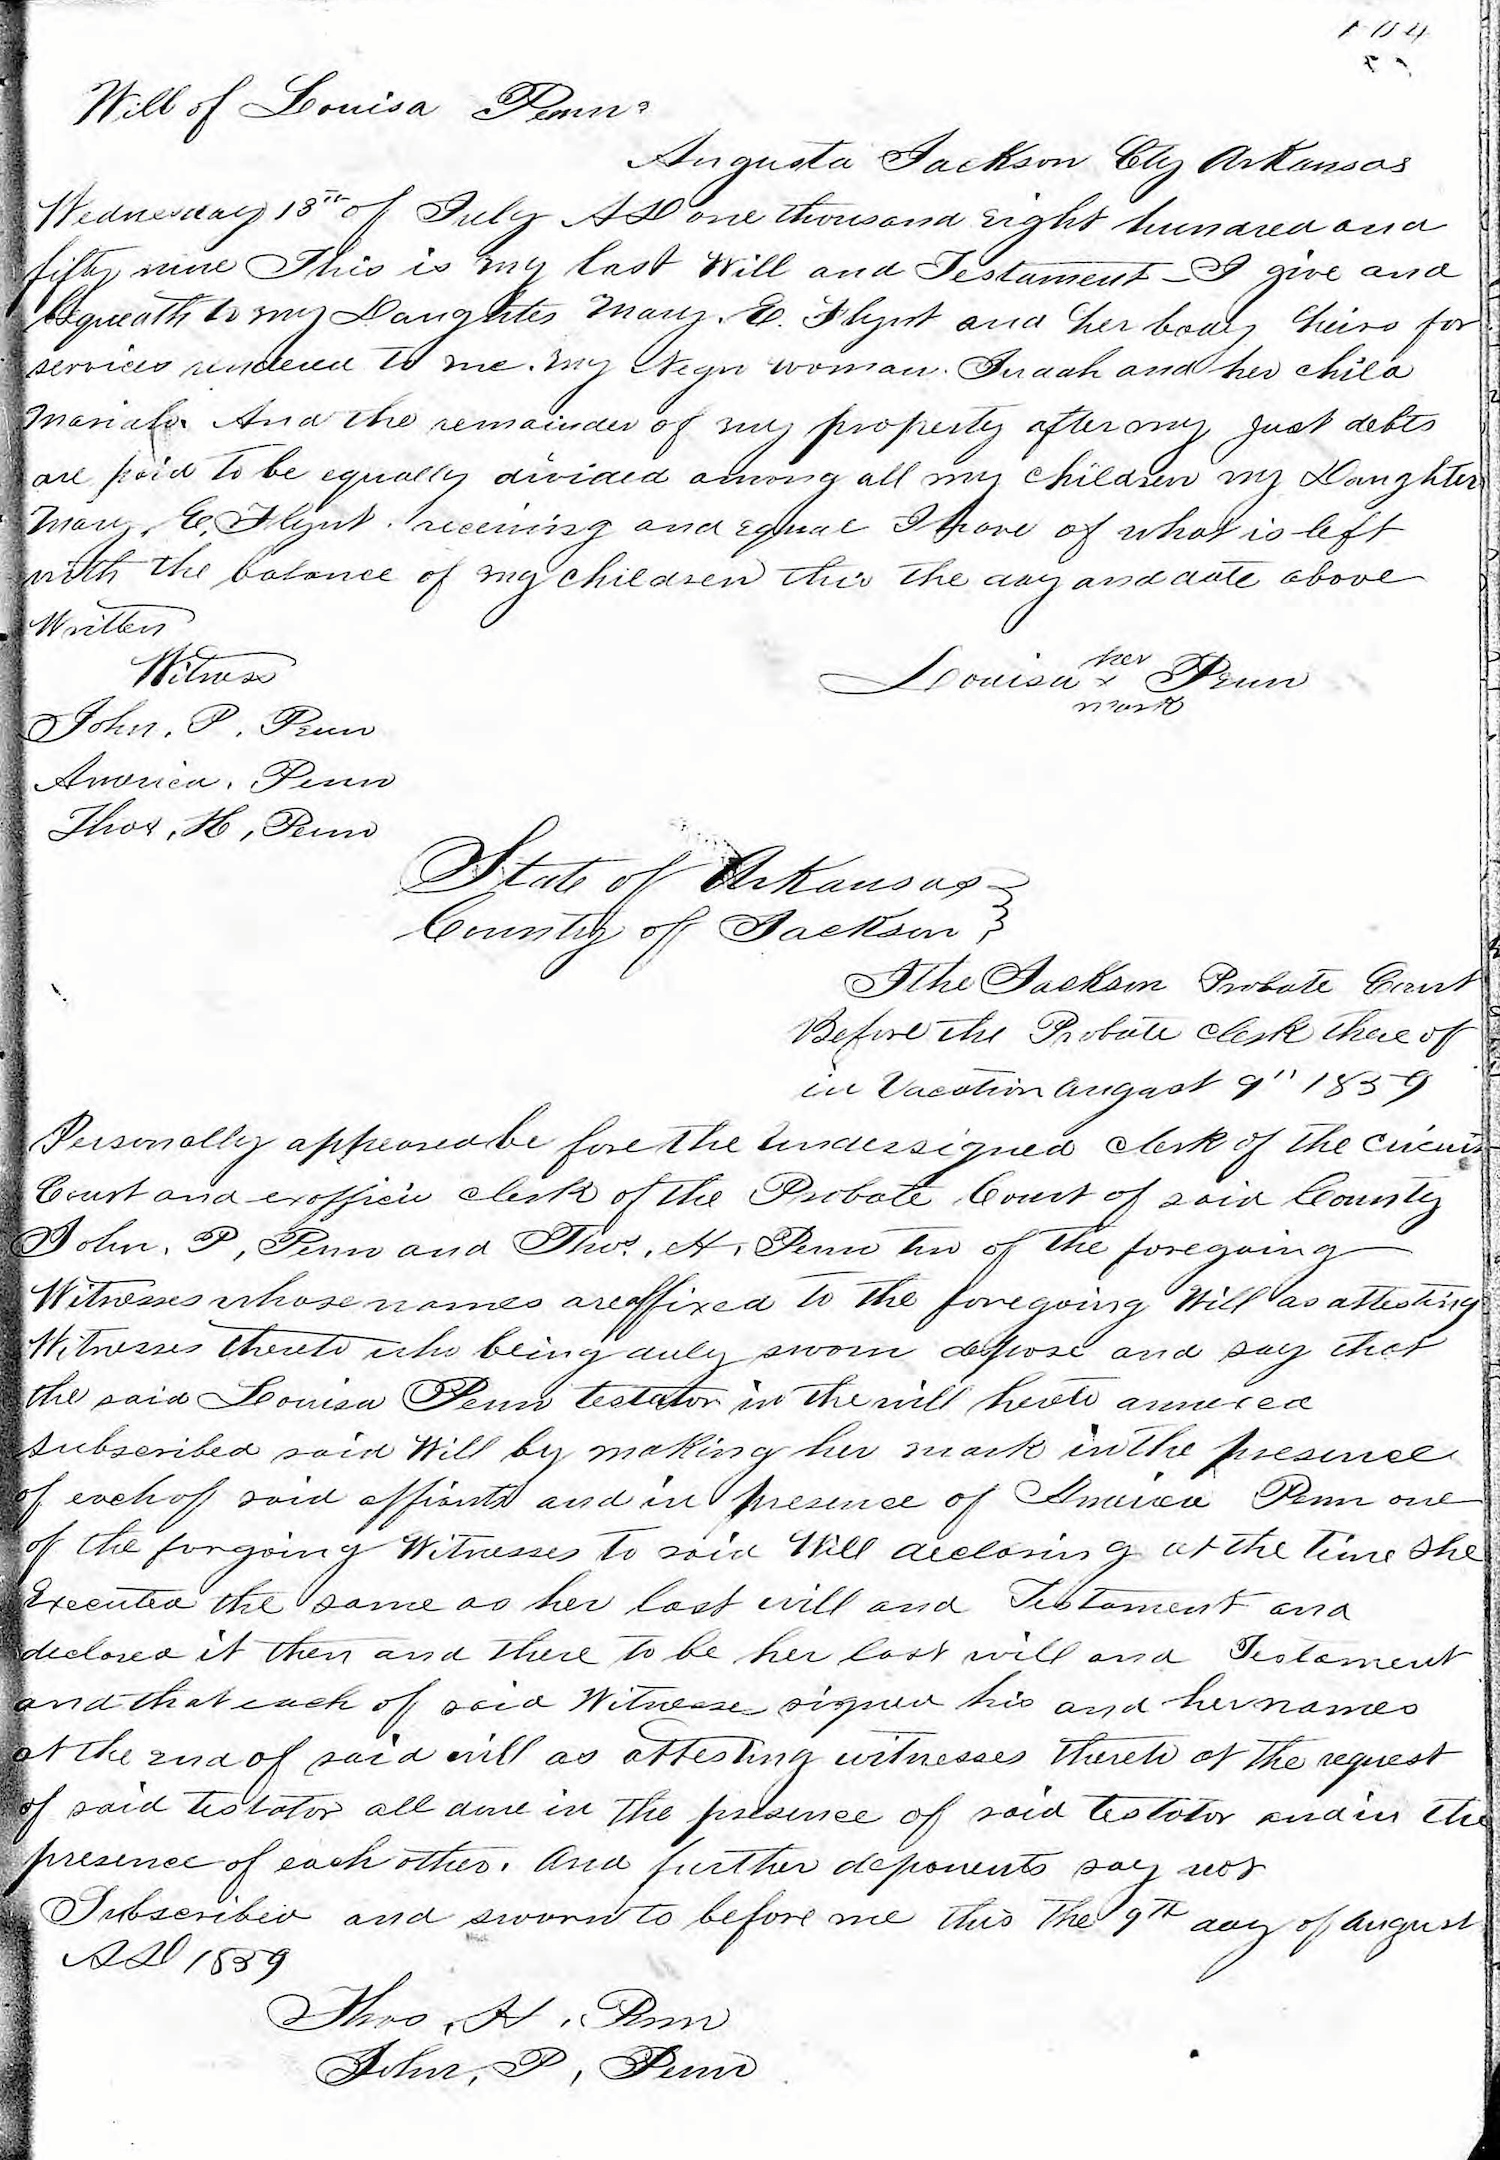 104
Will of Louisa Penn
Augusta Jackson Cty Arkansas
Wednesday 13th of July AD one thousand eight hundred and
fifty nine This is my last Will and Testament - I give and
bequeath to my Daughter Mary. E. Flynt and her body heirs for
services rendered to me. my Negro woman. Judah and her child
Mariah. And the remainder of my property after my just debts
are paid to be equally divided among all my children my Daughter
Mary. E. Flynt. receiving and equal Share of what is left
with the balance of my children this the day and date above
Written
Witness
Louisa her x mark Penn
John. P. Penn
America. Penn
Thos. H. Penn
State of Arkansas }
County of Jackson }
I the Jackson Probate Court
Before the Probate clerk there of
in Vacation August 9" 1859
Personally appeared be fore the undersigned clerk of the circuit
Court and exofficio clerk of the Probate Court of said County
John. P, Penn and Thos. H. Penn two of the foregoing
Witnesses whose names are affixed to the foregoing Will as attesting
Witnesses thereto who being duly sworn depose and say that
the said Louisa Penn testator in the will hereto annexed
subscribed said Will by making her mark in the presence
of each of said affiants and in presence of America Penn one
of the forgoing Witnesses to said Will declaring at the time she
Executed the same as her last will and Testament and
declared it then and there to be her last will and Testament
and that each of said Witnesse signed his and her names
at the end of said will as attesting witnesses thereto at the request
of said testator all done in the presence of said testator and in the
presence of each other. And further deponents say not
Subscribed and sworn to before me this the 9th day of August
AD 1859
Thos. H. Penn
John, P, Penn